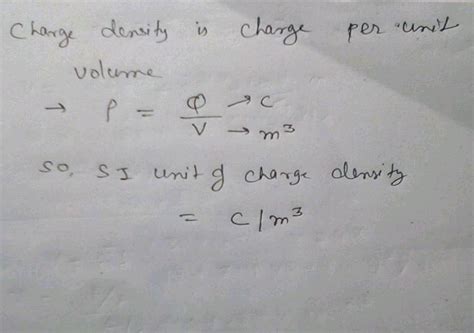 Charge density is charge per unit
volume
→ ρ = Q/V → C → m³
SO, SI unit of charge density
= C/m³